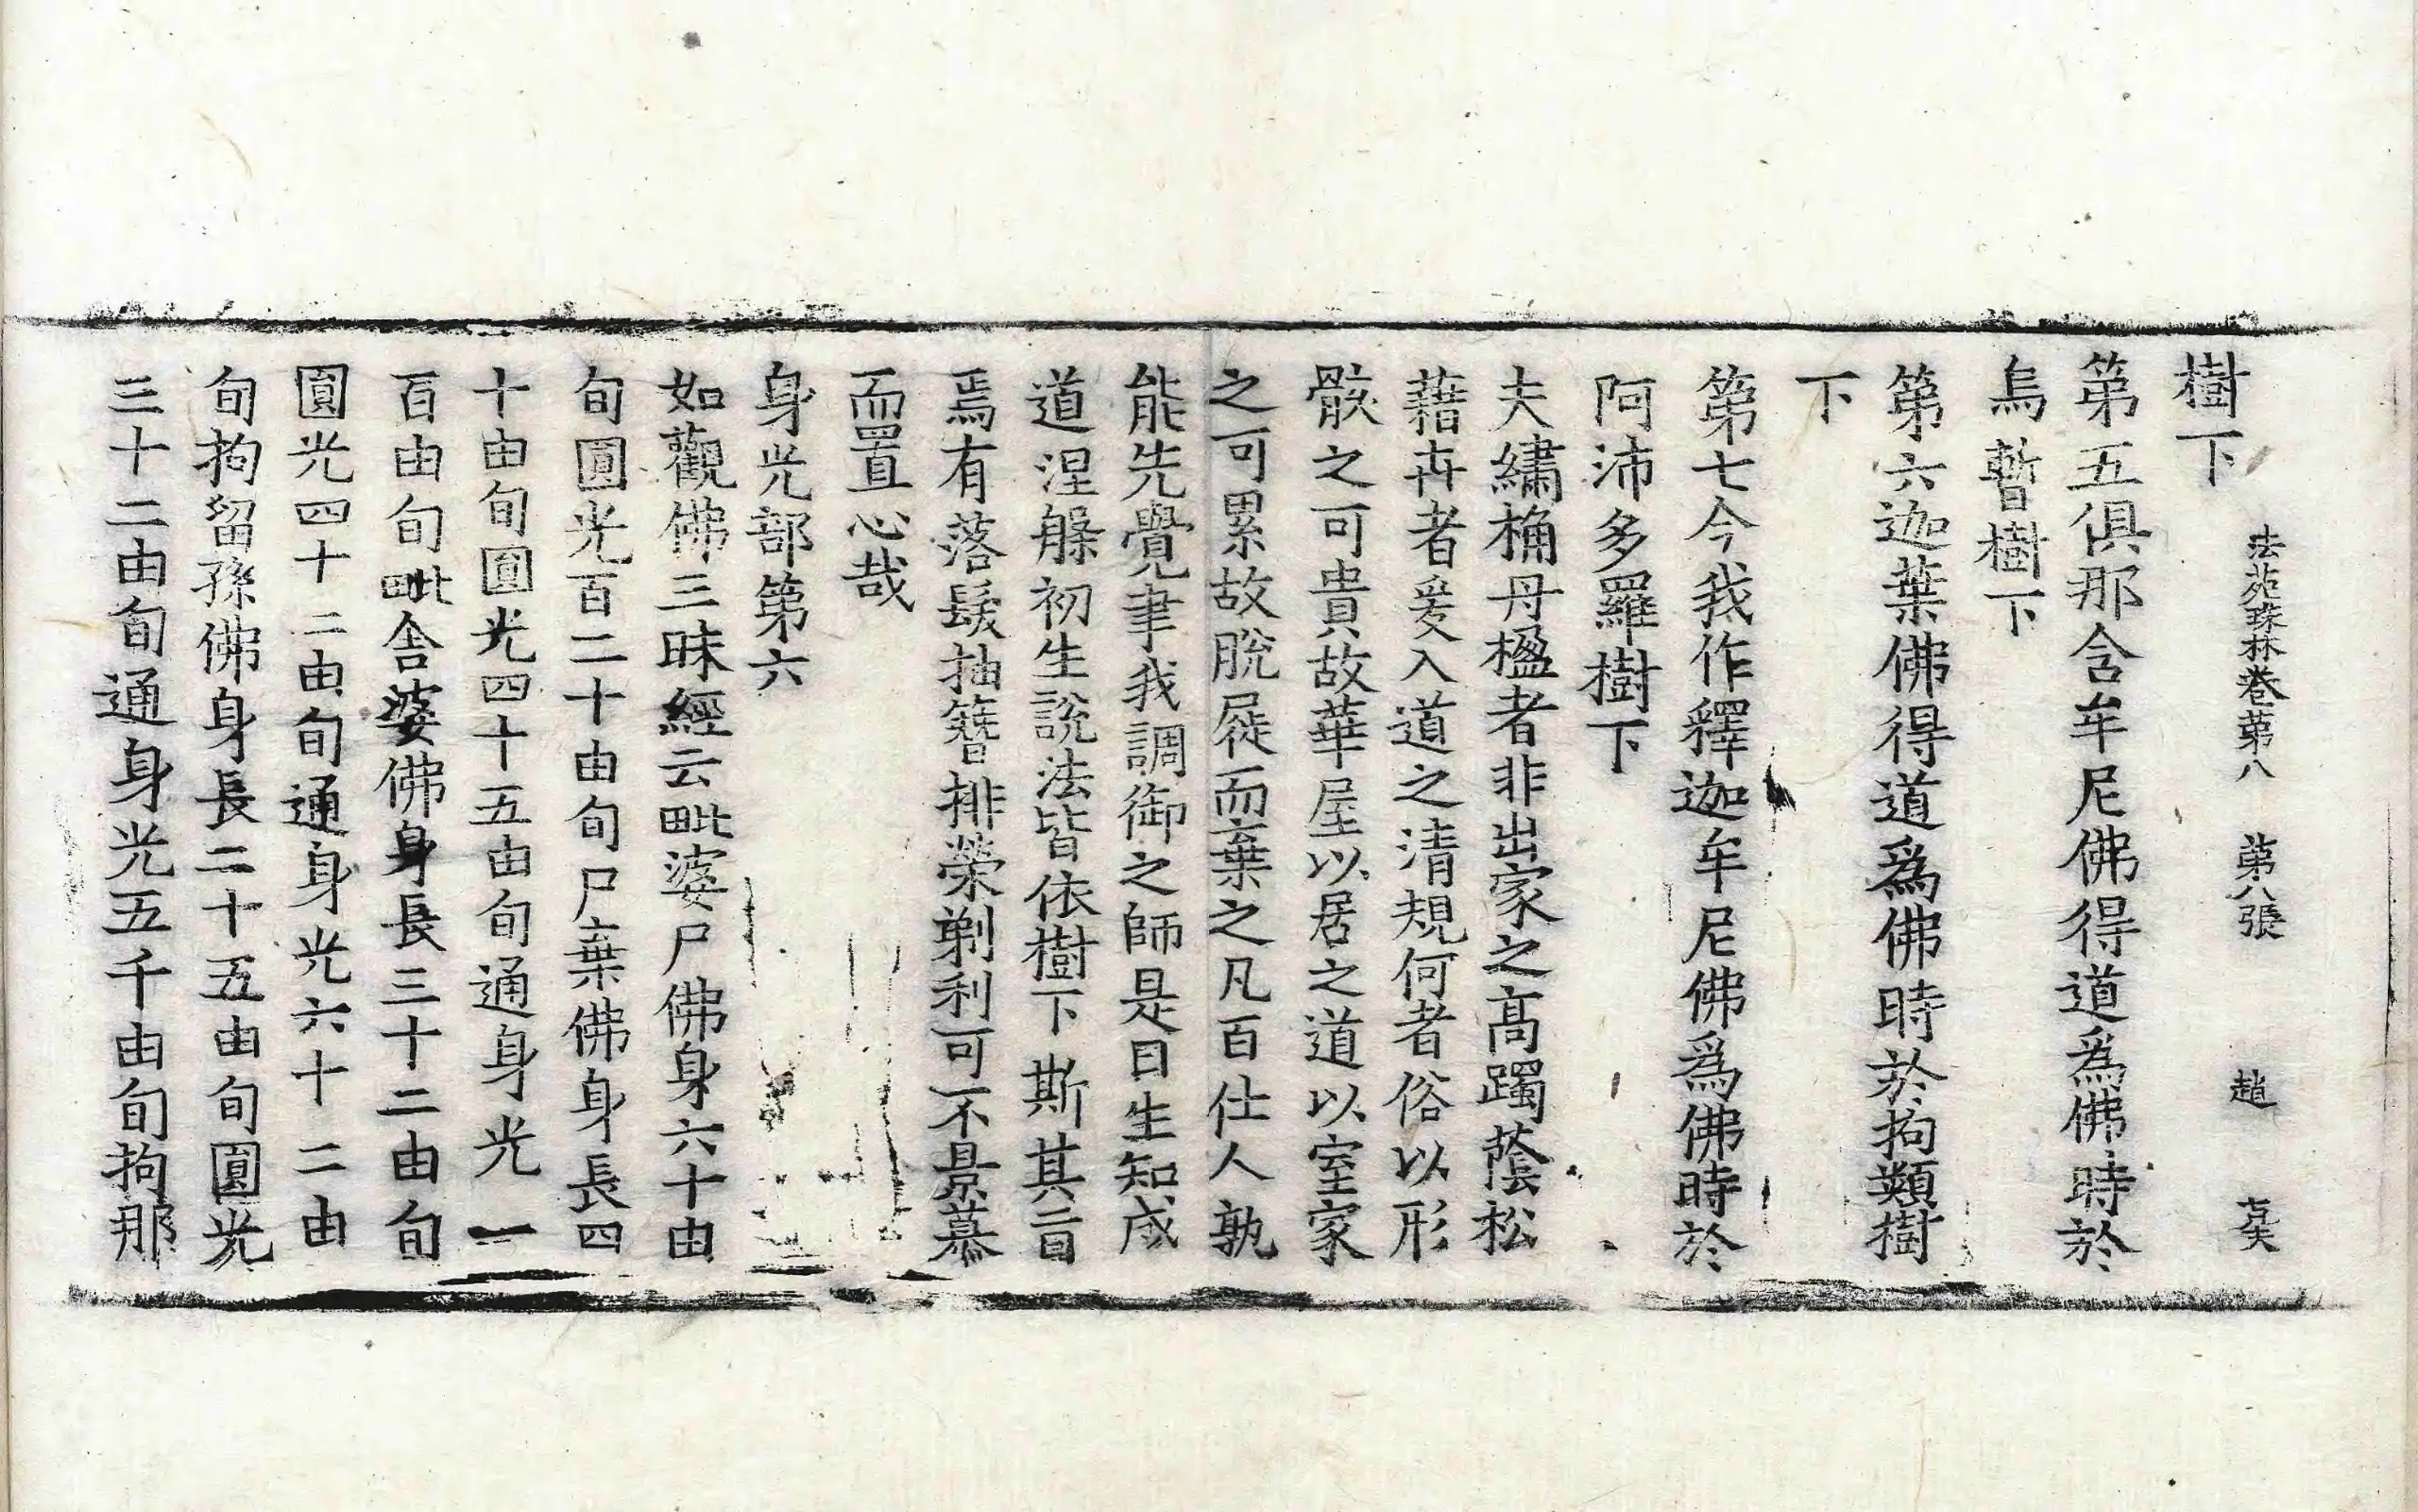 法苑珠林卷第八　第八張　趙　亰
樹下
第五俱那含牟尼佛得道爲佛時於
烏暫樹下
第六迦葉佛得道爲佛時於拘類樹
下
第七今我作釋迦牟尼佛爲佛時於
阿沛多羅樹下
夫繡桷丹楹者非出家之高躅蔭松
藉卉者爰入道之清規何者俗以形
骸之可貴故華屋以居之道以室家
之可累故脫屣而棄之凡百仕人孰
能先覺聿我調御之師是曰生知成
道涅槃初生說法皆依樹下斯其旨
焉有落髮抽簪排榮剃利可不景慕
而置心哉
身光部第六
如觀佛三昧經云毗婆尸佛身六十由
旬圓光百二十由旬尸棄佛身長四
十由旬圓光四十五由旬通身光一
百由旬毗舍婆佛身長三十二由旬
圓光四十二由旬通身光六十二由
旬拘留孫佛身長二十五由旬圓光
三十二由旬通身光五千由旬拘那